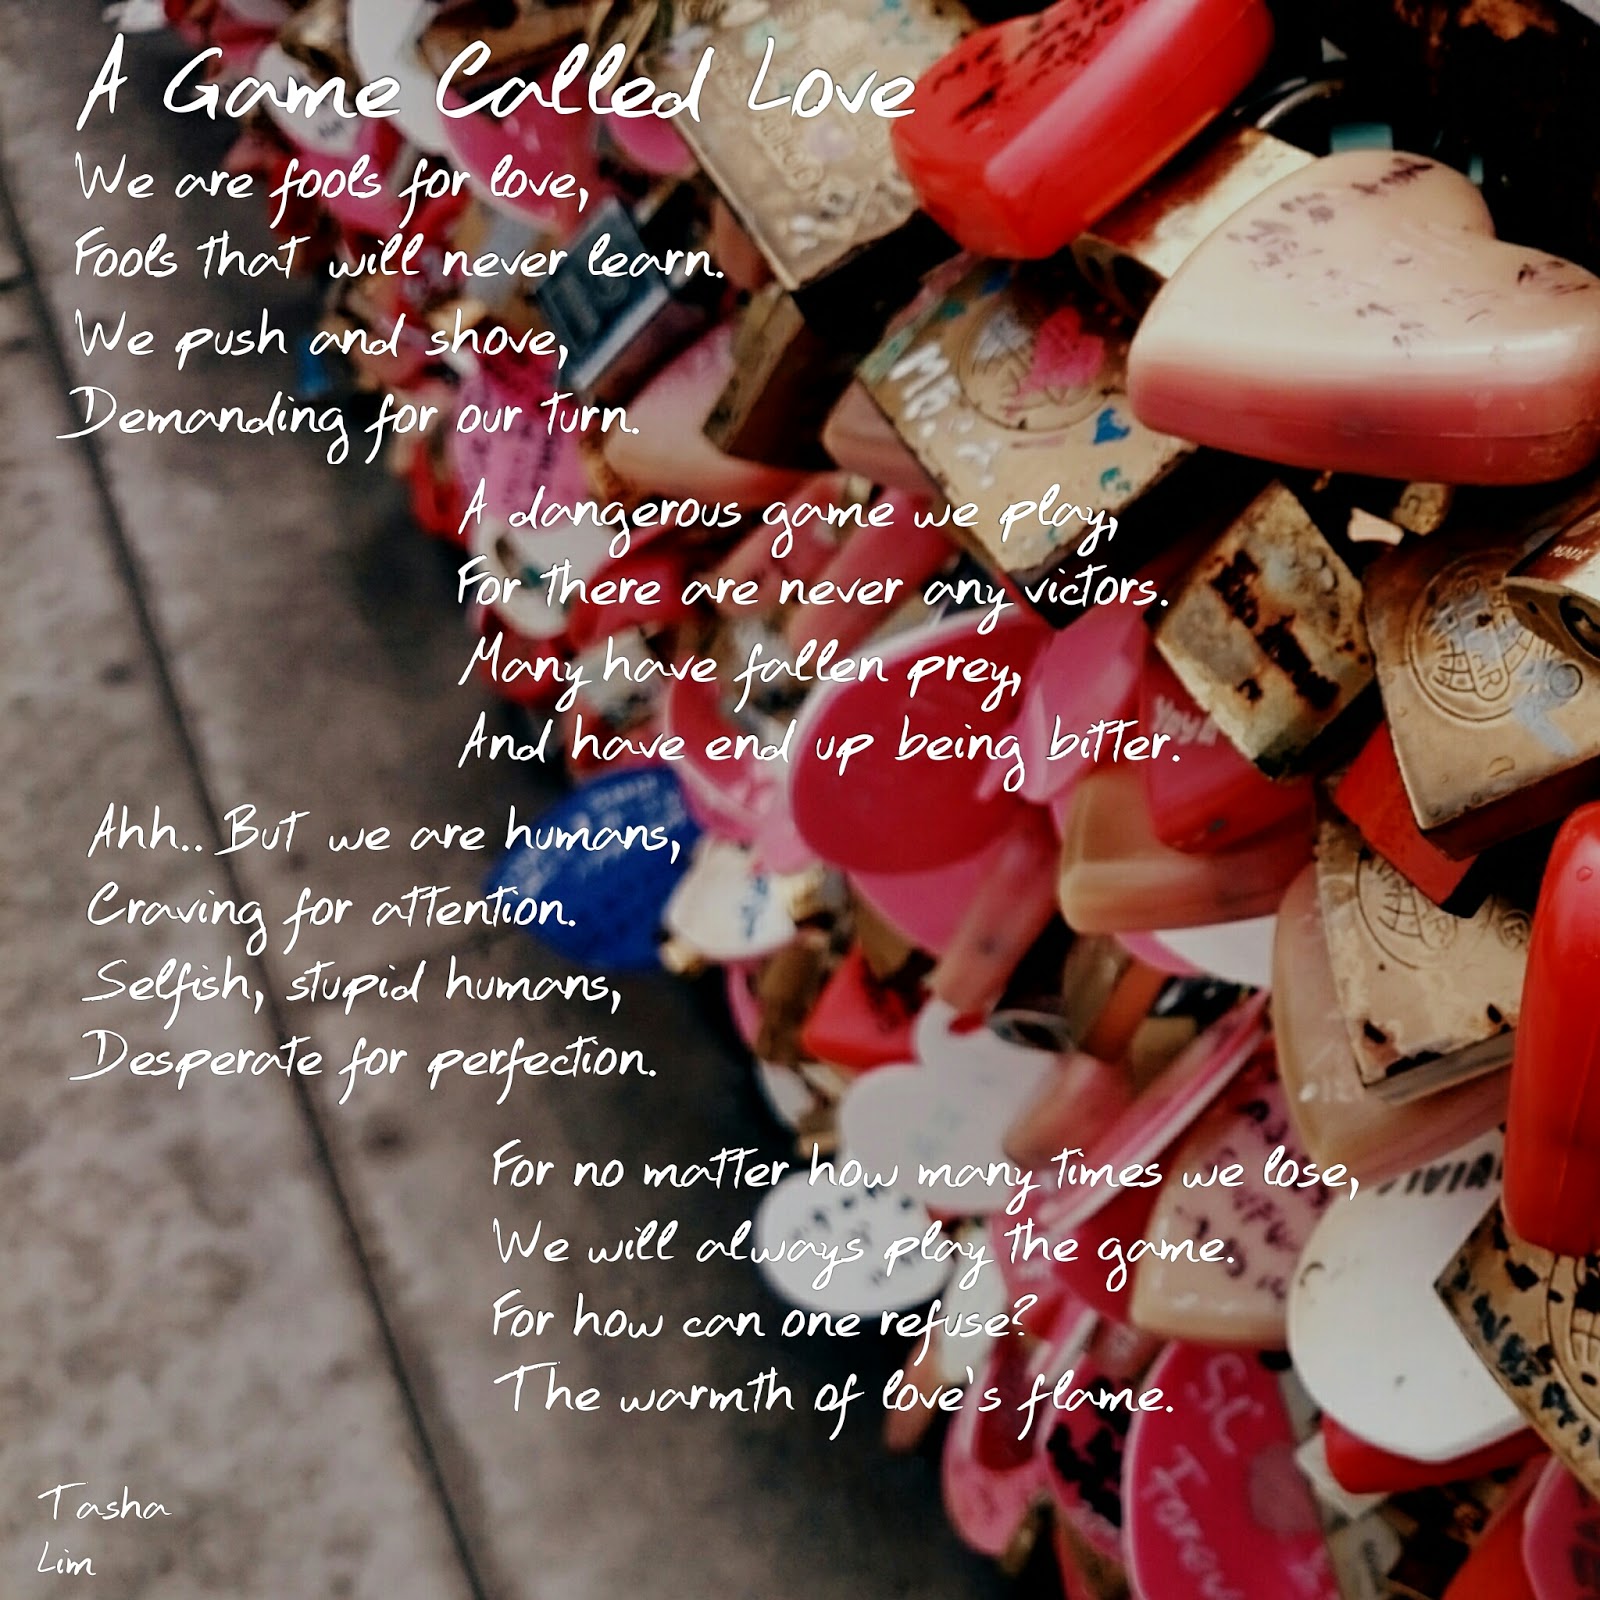 A Game Called Love
We are fools for love,
Fools that will never learn.
We push and shove,
Demanding for our turn.
A dangerous game we play,
For there are never any victors.
Many have fallen prey,
And have end up being bitter.
Ahh.. But we are humans,
Craving for attention.
Selfish, stupid humans,
Desperate for perfection.
For no matter how many times we lose,
We will always play the game.
For how can one refuse?
The warmth of love's flame.
Tasha
Lim
SC
Forever